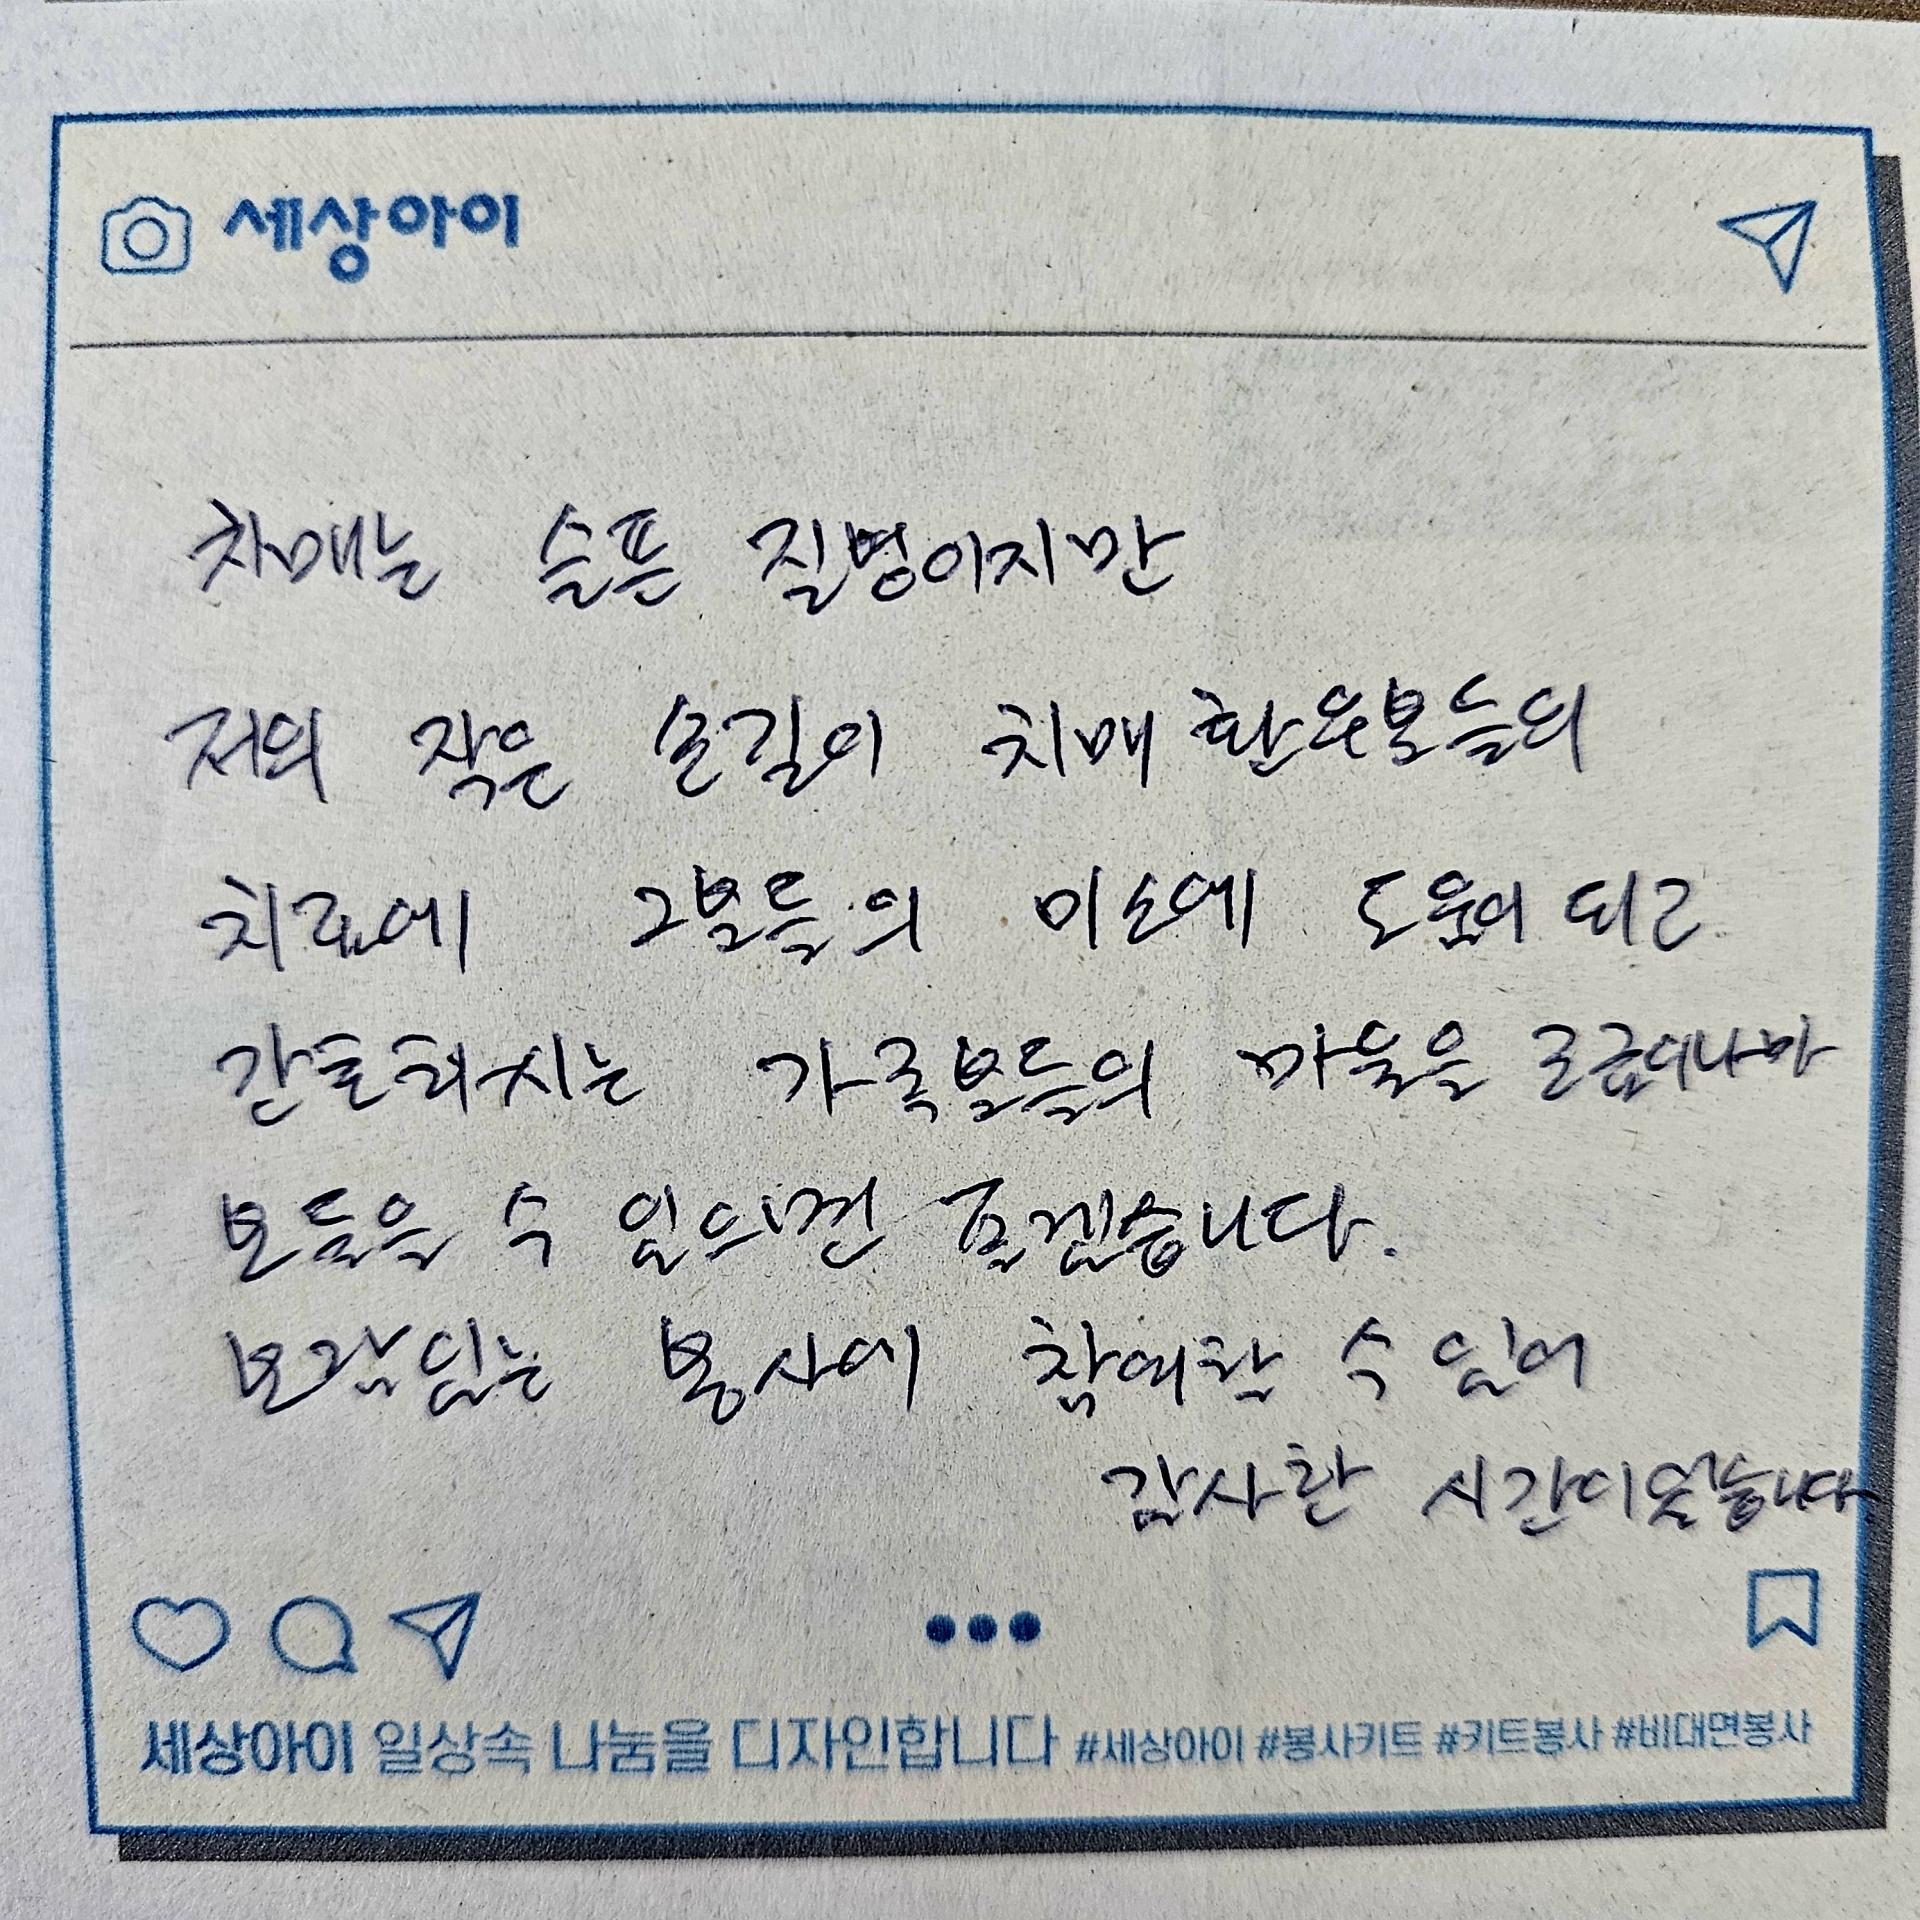 세상아이
치매는 슬픈 질병이지만
저의 작은 손길이 치매 환우분들의
치료에 그분들의 미소에 도움이 되고
간호하시는 가족분들의 마음을 조금이나마
보듬을 수 있으면 좋겠습니다.
보람있는 봉사에 참여할 수 있어
감사한 시간이었습니다
세상아이 일상속 나눔을 디자인합니다 #세상아이 #봉사키트 #키트봉사 #비대면봉사